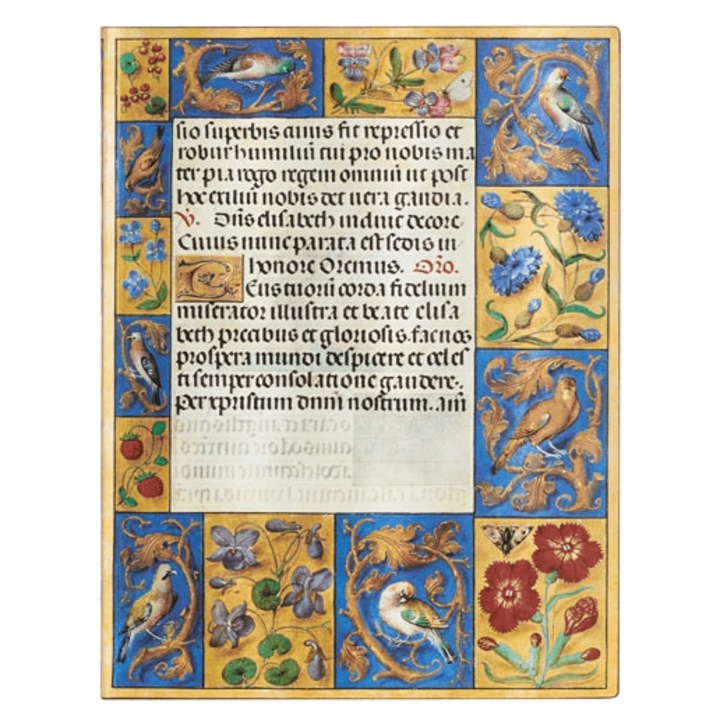 sio superbis cuius fit repressio et
robur humiliũ tui pro nobis ma
ter pia rogo regem omniũ ut post
hoc exiliũ nobis det uera gaudia.
V. Dñs elisabeth induit decore
Cuius nunc parata est sedis in
honore Oremus. Orõ.
Tuorũ corda fidelium
miserator illustra et beate elisa
beth precibus et gloriosis. fac nos
prospera mundi despicere et celes
ti semper consolatione gaudere.
per xpristum dnm̃ nostrum. am̃